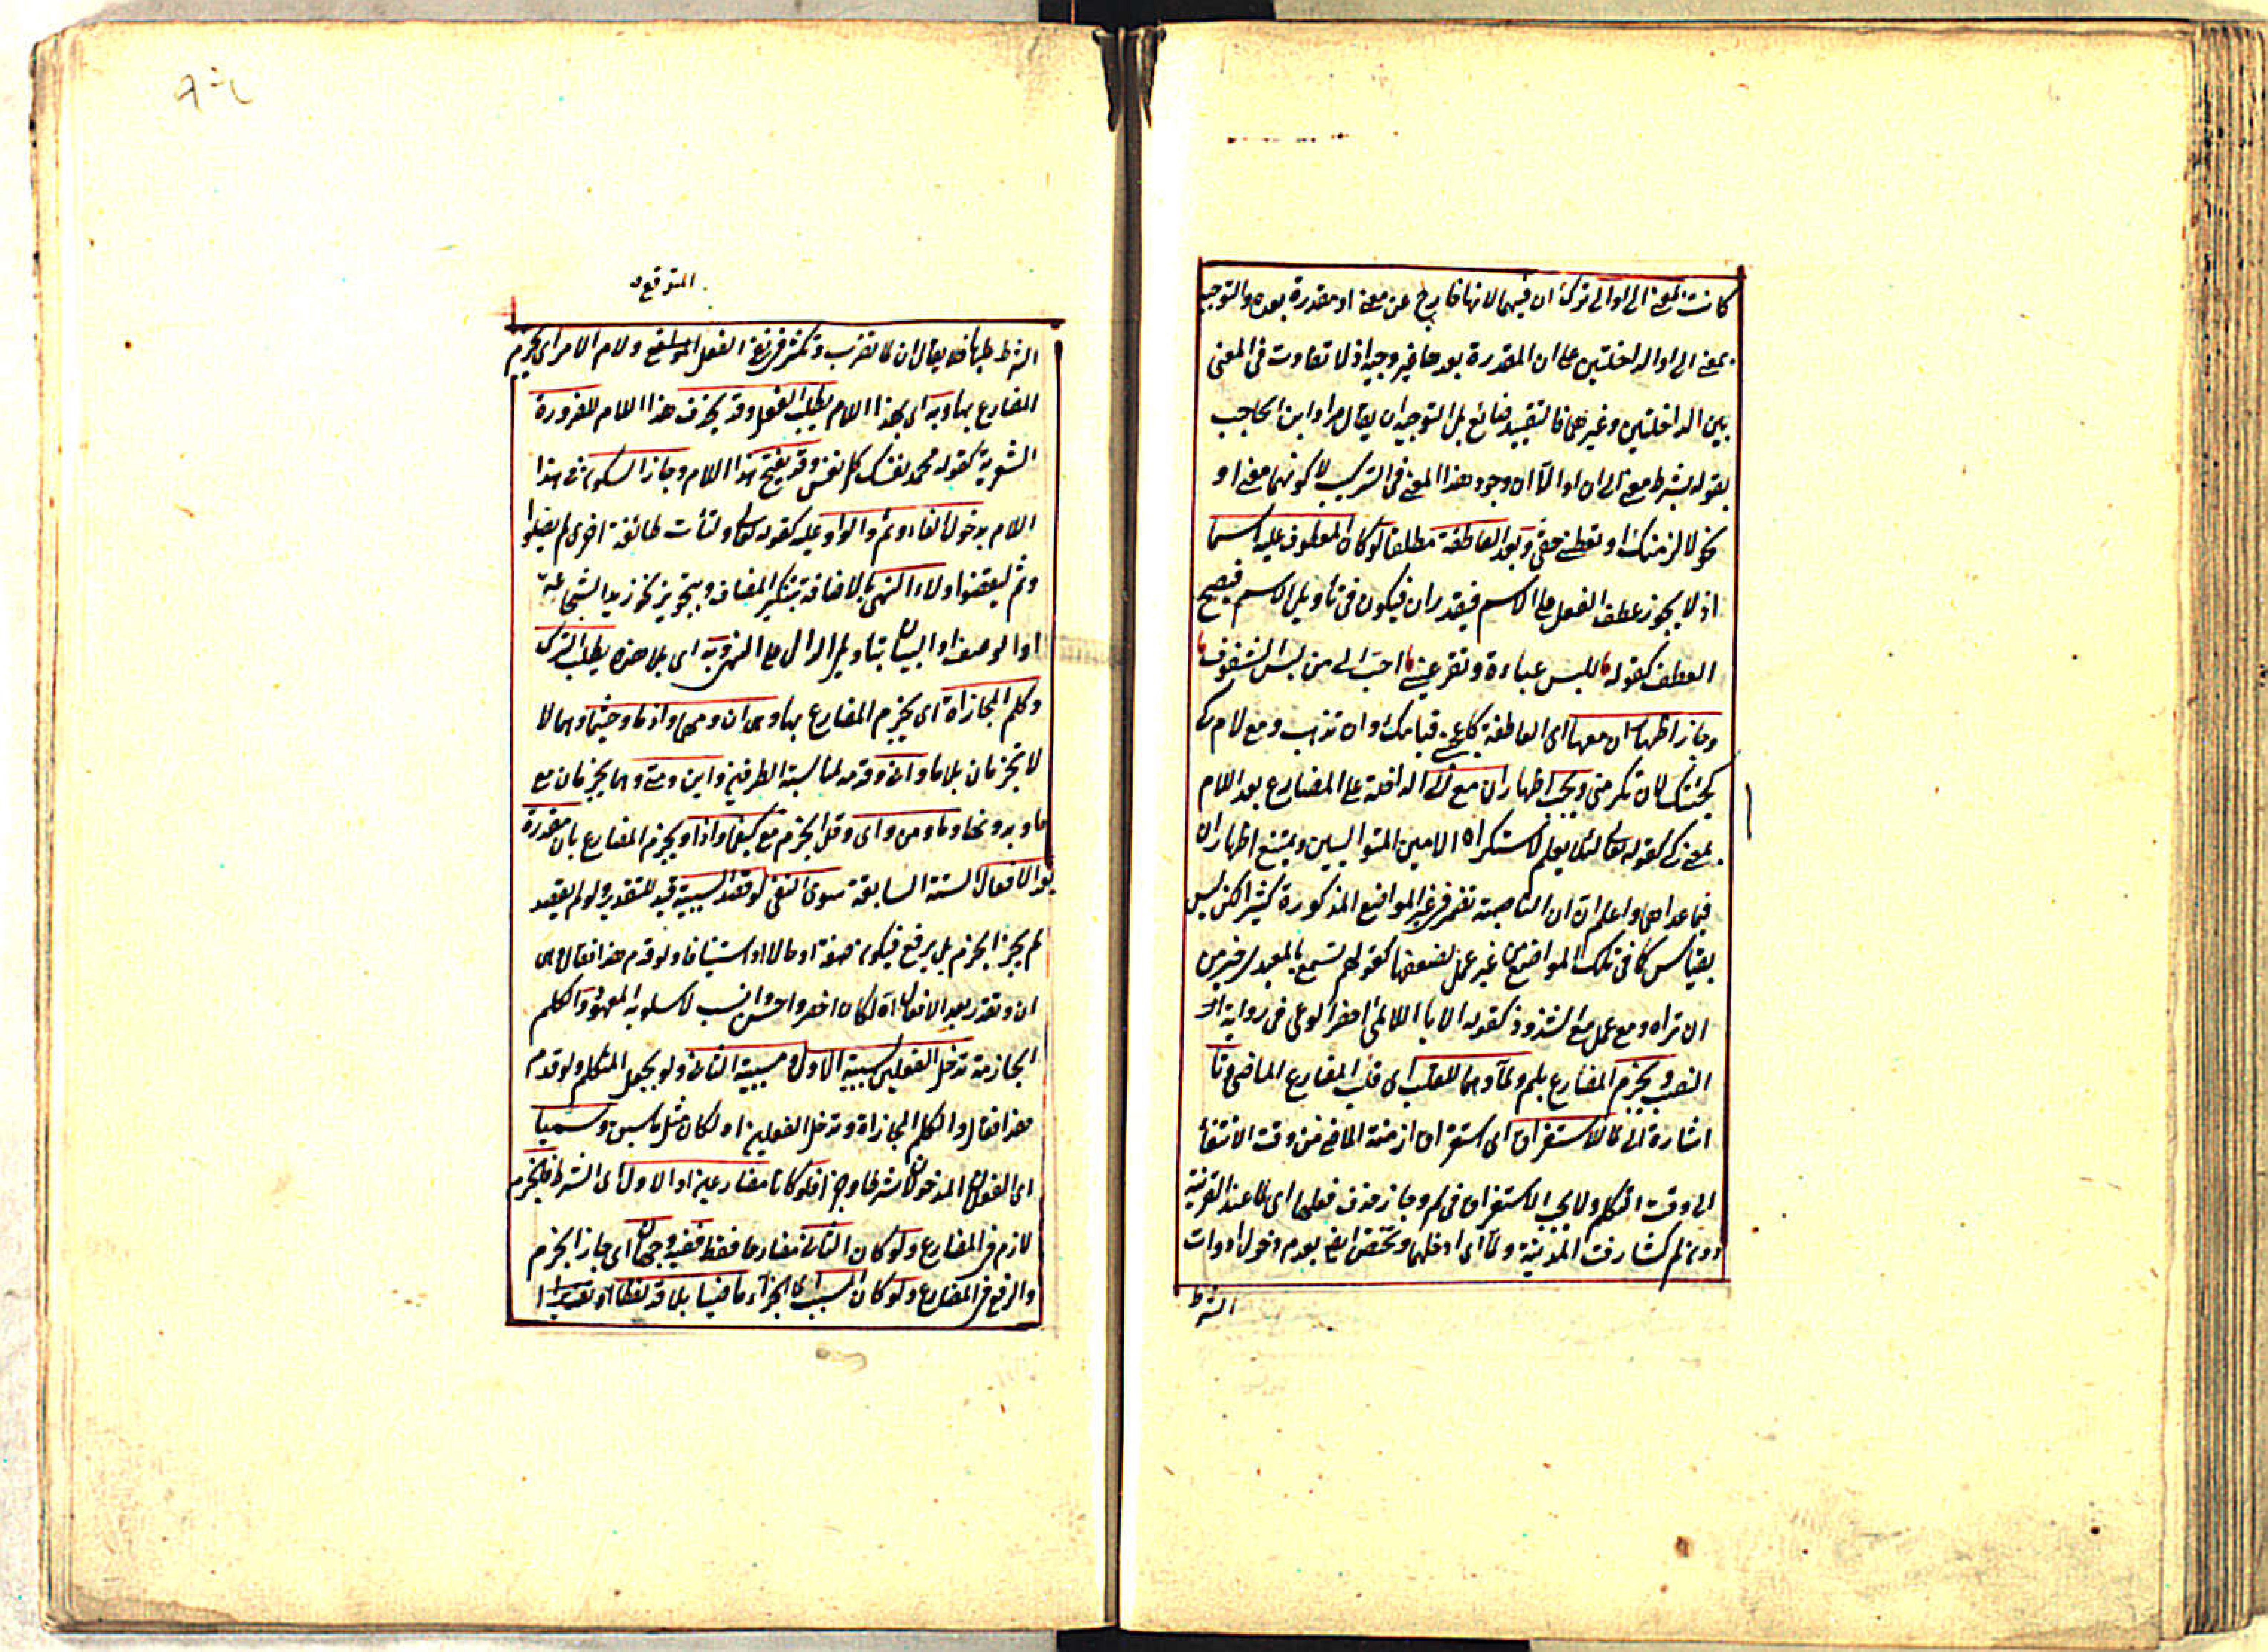 كانت بمعنى الى او الى ترك ان فيهما لانها خارج عن معنى او مقدرة بعده والتوجيه
بمعنى الى او الا الداخلتين على ان المقدرة بعدها غير وجيه اذ لا تفاوت فى المعنى
بين الداخلتين وغيرهما فالتقييد ضائع بل التوجيه ان يقال مراد ابن الحاجب
بقوله بشرط معنى الى ان او الا ان وجود هذا المعنى فى التركيب لا كونهما معنى او
نحو لالزمنك او تعطينى حقى وبعد العاطفة مطلقا لو كان المعطوف عليه اسما
اذ لا يجوز عطف الفعل على الاسم فيقدر ان فيكون فى تأويل الاسم فيصح
العطف كقوله للبس عباءة وتقر عينى احب الى من لبس الشفوف
وجاز اظهار ان معها اى العاطفة كاعجبنى قيامك وان تذهب ومع لام كى
كجئتك لان تكرمنى ويجب اظهار ان مع لا الداخلة على المضارع بعد اللام
بمعنى كى كقوله تعالى لئلا يعلم لاستكراه اللامين المتواليين ويمتنع اظهار ان
فيما عداها واعلم ان ان الناصبة تضمر فى غير المواضع المذكورة كثيرا لكن ليس
بقياس كما فى تلك المواضع من غير عمل لضعفها كقولهم تسمع بالمعيدى خير من
ان تراه ومع عمل مع الشذوذ كقوله الا يا اللائمى احضر الوغى فى رواية
النصب ويجزم المضارع بلم ولما وهما للقلب اى قلب المضارع الماضى
اشارة الى لما للاستغراق اى استغراق ازمنة الماضى من وقت الانتفاء
الى وقت التكلم ولا يجب الاستغراق فى لم وجاز حذف فعلها اى لما عند القرينة
دون لم كشارفت المدينة ولما اى ادخلها وتختص ايضا بعدم دخول ادوات
الشرط
المتوقع
الشرط عليها فلا يقال ان لما تضرب وتكثر فى نفى الفعل المتوقع ولام الامر اى يجزم
المضارع بها وبه اى بهذا اللام يطلب الفعل وقد يحذف هذا اللام للضرورة
الشعرية كقوله محمد تفد نفسك كل نفس وقد يفتح هذا اللام وجاز السكون فى هذا
اللام بدخول الفاء وثم والواو عليه كقوله تعالى ولتأت طائفة اخرى لم يصلوا
وثم ليقضوا ولاء النهى بالاضافة بتنكير المضاف وبتجويز نحو زيد الشجاعة
او الوصف او البيان بتأويل الدال على النهى وبه اى بلا هذه يطلب الترك
وكلم المجازاة اى يجزم المضارع بها وهى ان ومهما واذما وحيثما وهما لا
لا تجزمان بلا ما وانى وقدمه لمناسبة الظرفية واين ومتى وهما يجزمان مع
ما وبدونها وما ومن واى وقل الجزم مع كيفما واذا ويجزم المضارع بان مقدرة
بعد الافعال الستة السابقة سوى النفى لو قصد السببية قيد للتقدير ولو لم يقصد
لم يجز الجزم بل يرفع فيكون صفة او حالا او استينافا ولو قدم هذا فقال وهى
ان وتقدر بعد الافعال آه لكان اخصر واحسن وانسب لاسلوبه المعهود والكلم
الجازمة تدخل الفعلين لسببية الاول ومسببية الثانى ولو بجعل المتكلم ولو قدم
هذا فقال والكلم المجازاة وتدخل الفعلين اه لكان مثل ما سبق وسميا
اى الفعلان المدخولان شرطا وجزاء فلو كانا مضارعين او الاول اى الشرط فالجزم
لازم فى المضارع ولو كان الثانى مضارعا فقط ففيه وجهان اى جاز الجزم
والرفع فى المضارع ولو كان المسبب اى الجزاء ماضيا بلا قد لفظا او تقديرا